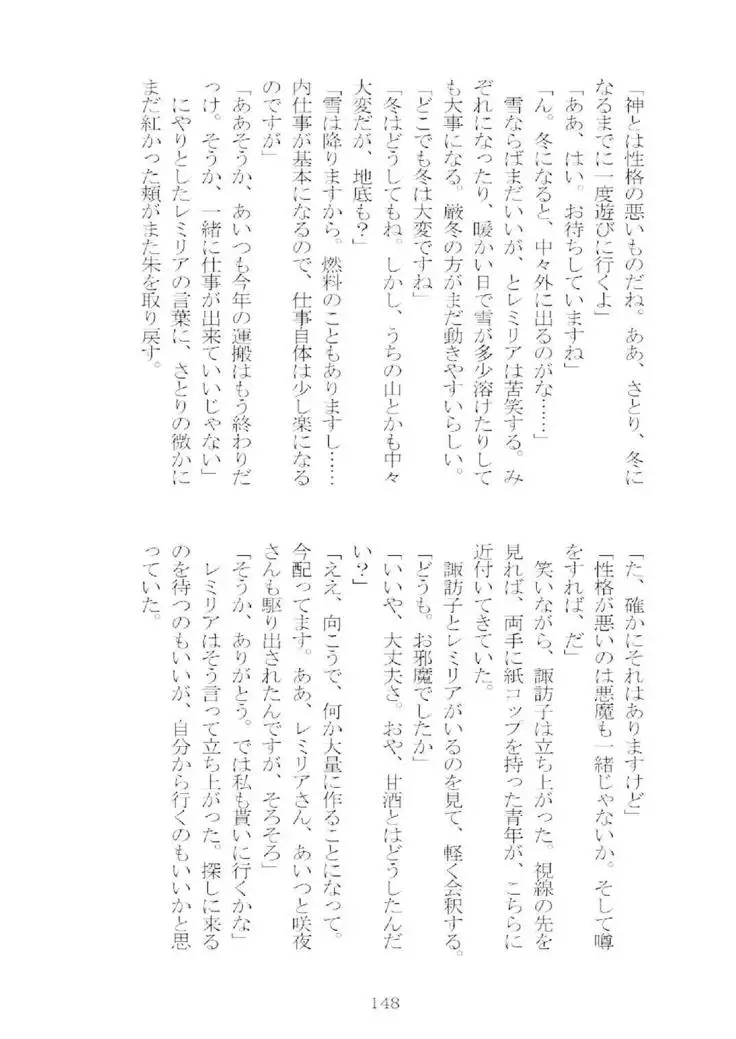 「神とは性格の悪いものだね。ああ、さとり、冬に
なるまでに一度遊びに行くよ」
「ああ、はい。お待ちしていますね」
「ん。冬になると、中々外に出るのがな……」
雪ならばまだいいが、とレミリアは苦笑する。み
ぞれになったり、暖かい日で雪が多少溶けたりして
も大事になる。厳冬の方がまだ動きやすいらしい。
「どこでも冬は大変ですね」
「冬はどうしてもね。しかし、うちの山とかも中々
大変だが、地底も？」
「雪は降りますから。燃料のこともありますし……
内仕事が基本になるので、仕事自体は少し楽になる
のですが」
「ああそうか、あいつも今年の運搬はもう終わりだ
っけ。そうか、一緒に仕事が出来ていいじゃない」
にやりとしたレミリアの言葉に、さとりの微かに
まだ紅かった頬がまた朱を取り戻す。
「た、確かにそれはありますけど」
「性格が悪いのは悪魔も一緒じゃないか。そして噂
をすれば、だ」
笑いながら、諏訪子は立ち上がった。視線の先を
見れば、両手に紙コップを持った青年が、こちらに
近付いてきていた。
諏訪子とレミリアがいるのを見て、軽く会釈する。
「どうも。お邪魔でしたか」
「いいや、大丈夫さ。おや、甘酒とはどうしたんだ
い？」
「ええ、向こうで、何か大量に作ることになって。
今配ってます。ああ、レミリアさん、あいつと咲夜
さんも駆り出されたんですが、そろそろ」
「そうか、ありがとう。では私も貰いに行くかな」
レミリアはそう言って立ち上がった。探しに来る
のを待つのもいいが、自分から行くのもいいかと思
っていた。
148